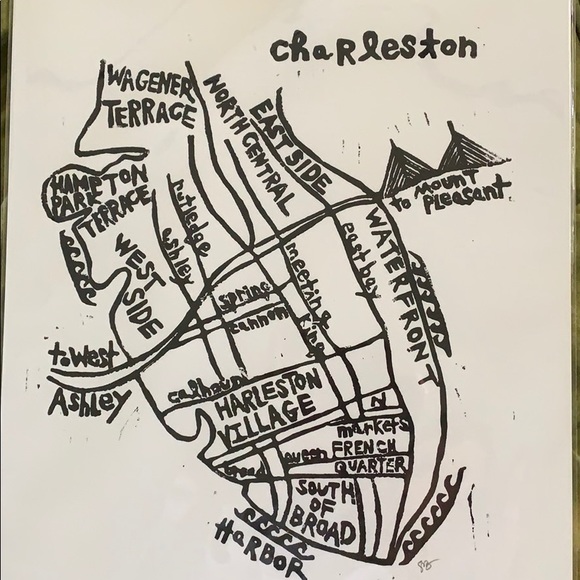 charleston
WAGENER
TERRACE
NORTH CENTRAL
EAST SIDE
to mount
pleasant
HAMPTON
PARK
TERRACE
rutledge
ashley
WEST
SIDE
WATERFRONT
east bay
meeting
king
spring
cannon
to west
Ashley
calhoun
HARLESTON
VILLAGE
N
markets
queen
FRENCH
QUARTER
broad
SOUTH
OF
BROAD
HARBOR